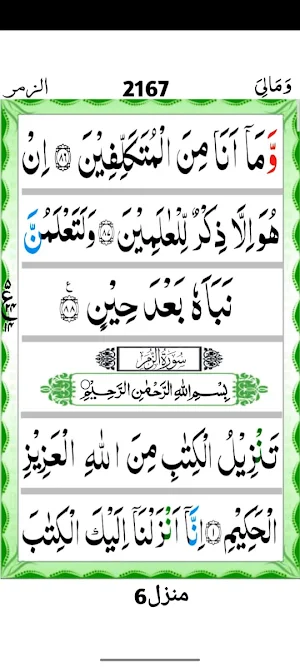 وَمَالِیَ 2167 الزمر
وَّمَاۤ اَنَا مِنَ الْمُتَكَلِّفِیْنَ ﴿۸۶﴾ اِنْ
هُوَ اِلَّا ذِكْرٌ لِّلْعٰلَمِیْنَ ﴿۸۷﴾ وَلَتَعْلَمُنَّ
نَبَاَهٗ بَعْدَ حِیْنٍ ﴿۸۸﴾ ع
سُوْرَةُ الزُّمَرِ
بِسْمِ اللّٰهِ الرَّحْمٰنِ الرَّحِیْمِ
تَنْزِیْلُ الْكِتٰبِ مِنَ اللّٰهِ الْعَزِیْزِ
الْحَكِیْمِ ﴿۱﴾ اِنَّاۤ اَنْزَلْنَاۤ اِلَیْكَ الْكِتٰبَ
منزل6